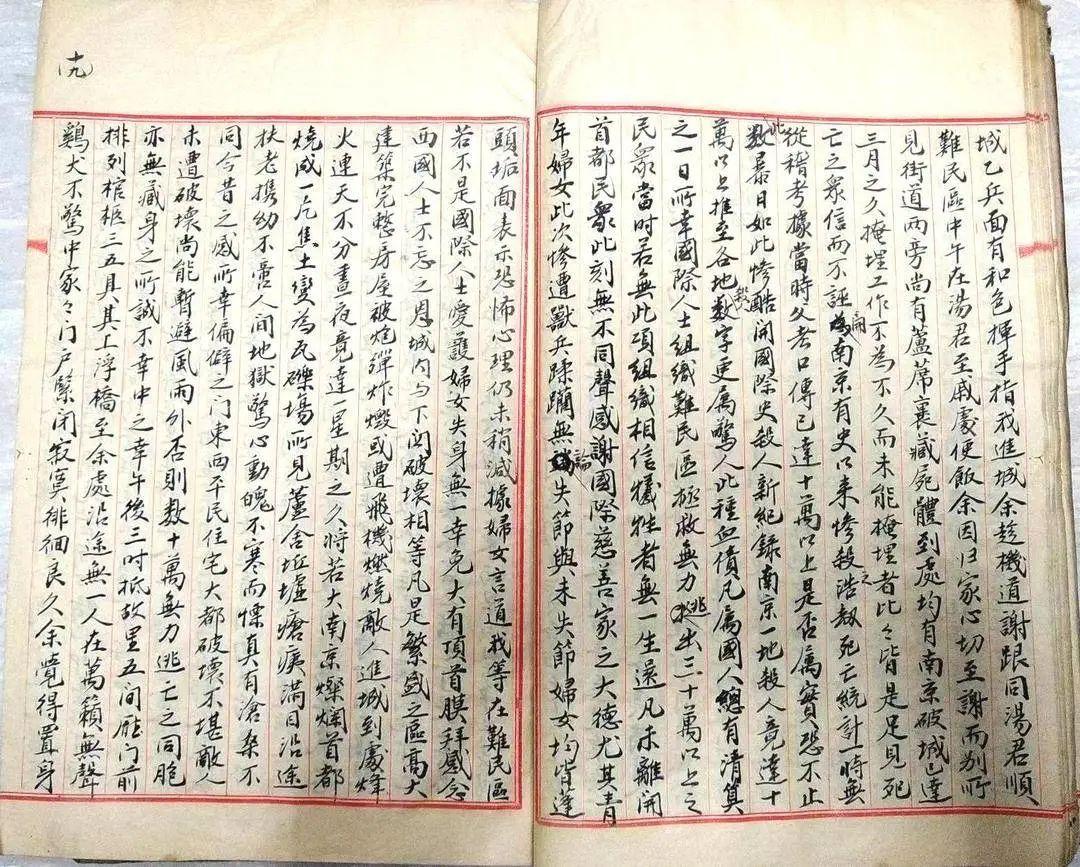 城乙兵面有和色揮手指我進城余趁機道謝跟同湯君順
難民區中午在湯君至戚處便飯余因归家心切至謝而别所
見街道两旁尚有蘆蓆裹藏屍體到處均有南京破城已達
三月之久掩埋工作不為不久而未能掩埋者比々皆是足見死
亡之衆信而不誣論南京有史以来惨殺浩劫死亡統計一時無
從稽考據當時父老口傳已達十萬以上是否属實恐不止
此數暴日如此惨酷開國際史殺人新紀録南京一地殺人竟達十
萬以上推至各地数字更属驚人此種血債凡属國人總有清算
之一日所幸國際人士組織難民區極救無力逃出二十萬以上之
民衆當时若無此項組織相信犠牲者無一生還凡未離開
首都民衆此刻無不同聲感謝國際慈善家之大德尤其青
年婦女此次惨遭獸兵蹂躙無論失節與未失節婦女均皆蓬
頭垢面表示恐怖心理仍未稍減據婦女言道我等在難民區
若不是國際人士愛護婦女失身無一幸免大有頂首膜拜感念
西國人士不忘之恩城内与下関破壞相等凡是繁盛之區高大
建築完整房屋被炮彈炸燬或遭飛機燃燒敵人進城到處烽
火連天不分晝夜竟達一星期之久將若大南京燦爛首都
燒成一片焦土變為瓦礫塲所見蘆舍坵墟瘡痍满目沿途
扶老携幼不啻人間地獄驚心動魄不寒而慄真有滄桑不
同今昔之感所幸偏僻之门東西平民住宅大都破壞不堪敵人
未遭破壞尚能暫避風雨外否則数十萬無力逃亡之同胞
亦無藏身之所誠不幸中之幸午後三时抵故里五间廳门前
排列棺柩三五具其上浮橋至余處沿途無一人在萬籟無聲
鷄犬不驚中家々门户緊闭寂寞徘徊良久余覺得置身
十九